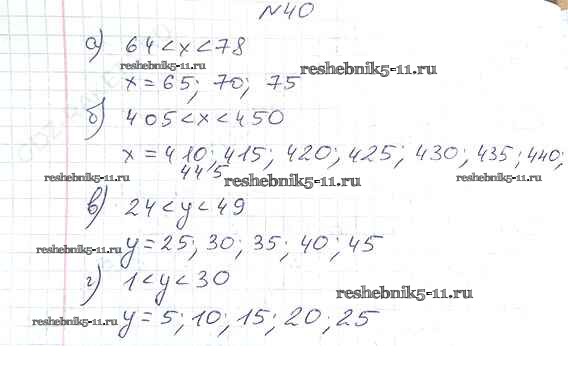 №40
а) 64 < x < 78
reshebnik5-11.ru
reshebnik5-11.ru
x = 65; 70; 75
б) 405 < x < 450
x = 410; 415; 420; 425; 430; 435; 440;
445
reshebnik5-11.ru
reshebnik5-11.ru
reshebnik5-11.ru
в) 24 < y < 49
y = 25; 30; 35; 40; 45
reshebnik5-11.ru
г) 1 < y < 30
reshebnik5-11.ru
y = 5; 10; 15; 20; 25
reshebnik5-11.ru